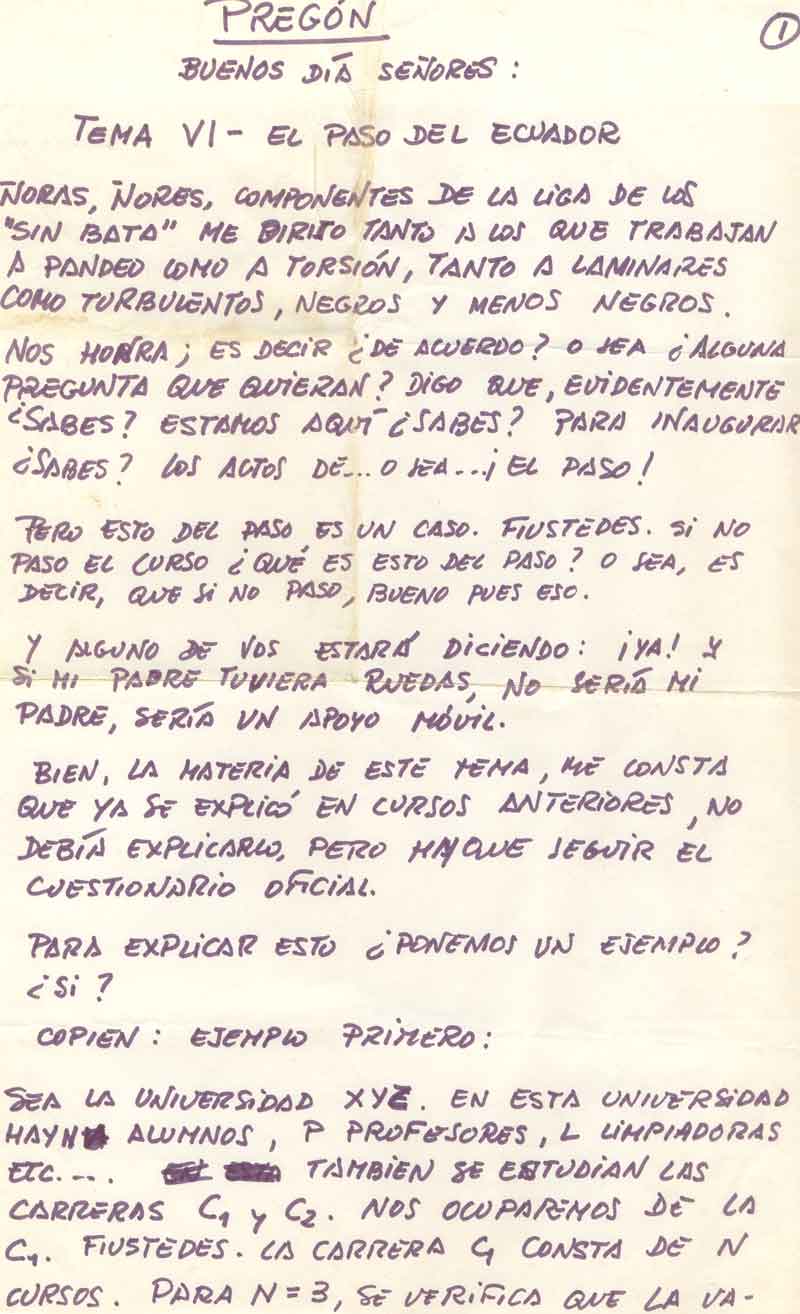 PREGÓN
1
BUENOS DÍA SEÑORES:
TEMA VI - EL PASO DEL ECUADOR
ÑORAS, ÑORES, COMPONENTES DE LA LIGA DE LOS
"SIN BATA" ME DIRIJO TANTO A LOS QUE TRABAJAN
A PANDEO COMO A TORSIÓN, TANTO A LAMINARES
COMO TURBULENTOS, NEGROS Y MENOS NEGROS.
NOS HONRA; ES DECIR ¿DE ACUERDO? O SEA ¿ALGUNA
PREGUNTA QUE QUIERAN? DIGO QUE, EVIDENTEMENTE
¿SABES? ESTAMOS AQUÍ ¿SABES? PARA INAUGURAR
¿SABES? LOS ACTOS DE... O SEA...¡EL PASO!
PERO ESTO DEL PASO ES UN CASO. FIUSTEDES. SI NO
PASO EL CURSO ¿QUÉ ES ESTO DEL PASO? O SEA, ES
DECIR, QUE SI NO PASO, BUENO PUES ESO.
Y ALGUNO DE VOS ESTARÁ DICIENDO: ¡YA! Y
SI MI PADRE TUVIERA RUEDAS, NO SERÍA MI
PADRE, SERÍA UN APOYO MÓVIL.
BIEN, LA MATERIA DE ESTE TEMA, ME CONSTA
QUE YA SE EXPLICÓ EN CURSOS ANTERIORES, NO
DEBÍA EXPLICARLO, PERO HAY QUE SEGUIR EL
CUESTIONARIO OFICIAL.
PARA EXPLICAR ESTO ¿PONEMOS UN EJEMPLO?
¿SI?
COPIEN: EJEMPLO PRIMERO:
SEA LA UNIVERSIDAD XYZ. EN ESTA UNIVERSIDAD
HAY N ALUMNOS, P PROFESORES, L LIMPIADORAS
ETC.... TAMBIEN SE ESTUDIAN LAS
CARRERAS C1 Y C2. NOS OCUPAREMOS DE LA
C1. FIUSTEDES. LA CARRERA C1 CONSTA DE N
CURSOS. PARA N=3, SE VERIFICA QUE LA VA-